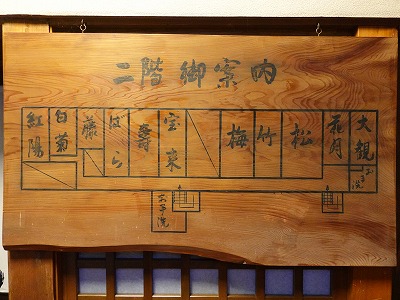 二階御案内
大観
花月
松
竹
梅
宝来
寿
ばら
藤
白菊
紅陽
お手洗
お手洗